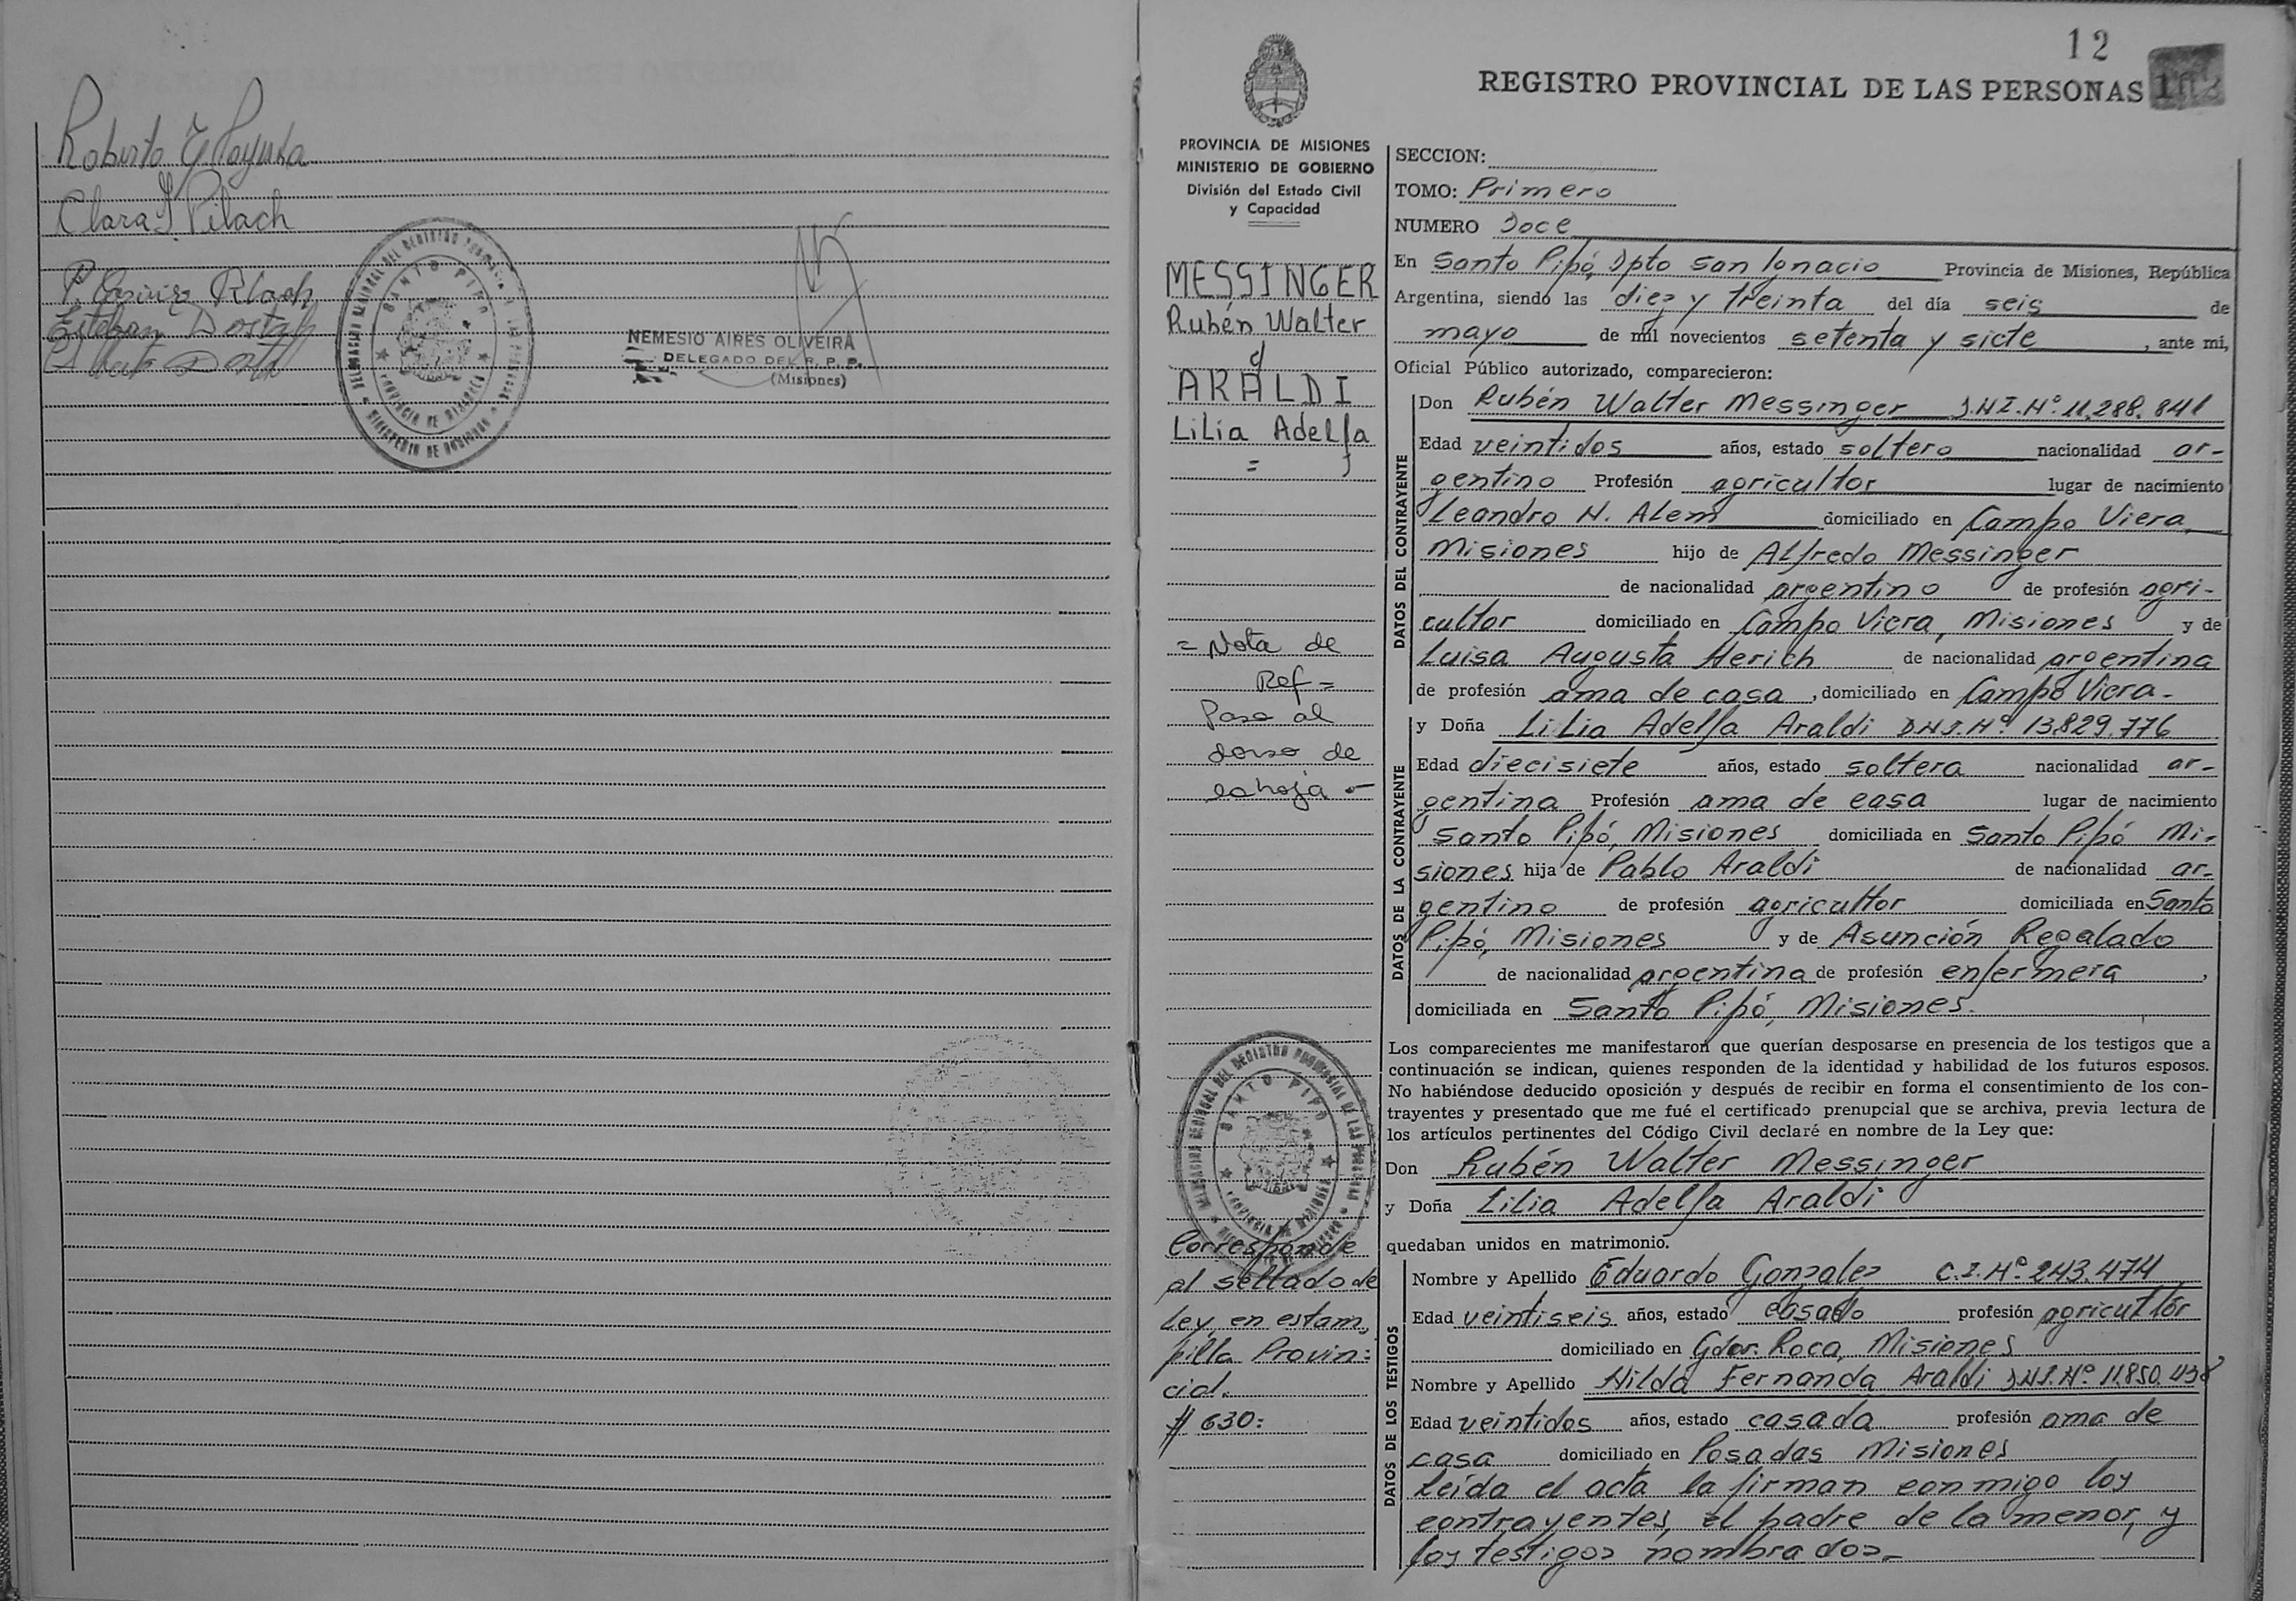 Roberto
Clara Pilach
Esteban
NEMESIO AIRES OLIVEIRA
DELEGADO DEL R. P. P.
(Misiones)
SANTO PIPO
PROVINCIA DE MISIONES
12
REGISTRO PROVINCIAL DE LAS PERSONAS
PROVINCIA DE MISIONES
MINISTERIO DE GOBIERNO
División del Estado Civil
y Capacidad
MESSINGER
Rubén Walter
y
ARALDI
Lilia Adelfa
=
= Nota de
Ref =
Pasa al
dorso de
la hoja
DELEGACION REGIONAL DEL REGISTRO PROVINCIAL DE LAS PERSONAS
SANTO PIPO
PROVINCIA DE MISIONES
Corresponde
al sellado de
Ley en estam,
pilla Provin=
cial.
$ 630=
SECCION:
TOMO: Primero
NUMERO Doce
En Santo Pipó, Dpto San Ignacio Provincia de Misiones, República
Argentina, siendo las diez y treinta del día seis de
mayo de mil novecientos setenta y siete, ante mi,
Oficial Público autorizado, comparecieron:
DATOS DEL CONTRAYENTE
Don Rubén Walter Messinger D.N.I. Nº 11.288.841
Edad veintidos años, estado soltero nacionalidad ar-
gentino Profesión agricultor lugar de nacimiento
Leandro N. Alem domiciliado en Campo Viera
Misiones hijo de Alfredo Messinger
de nacionalidad argentino de profesión agri-
cultor domiciliado en Campo Viera, Misiones y de
Luisa Augusta Herich de nacionalidad argentina
de profesión ama de casa, domiciliado en Campo Viera-
DATOS DE LA CONTRAYENTE
y Doña Lilia Adelfa Araldi D.N.I. Nº 13.829.776
Edad diecisiete años, estado soltera nacionalidad ar-
gentina Profesión ama de casa lugar de nacimiento
Santo Pipó, Misiones domiciliada en Santo Pipó Mi-
siones hija de Pablo Araldi de nacionalidad ar-
gentino de profesión agricultor domiciliada en Santo
Pipó, Misiones y de Asunción Regalado
de nacionalidad argentina de profesión enfermera,
domiciliada en Santo Pipó, Misiones.
Los comparecientes me manifestaron que querían desposarse en presencia de los testigos que a
continuación se indican, quienes responden de la identidad y habilidad de los futuros esposos.
No habiéndose deducido oposición y después de recibir en forma el consentimiento de los con-
trayentes y presentado que me fué el certificado prenupcial que se archiva, previa lectura de
los artículos pertinentes del Código Civil declaré en nombre de la Ley que:
Don Rubén Walter Messinger
y Doña Lilia Adelfa Araldi
quedaban unidos en matrimonio.
DATOS DE LOS TESTIGOS
Nombre y Apellido Eduardo Gonzalez C.I. Nº 243.474
Edad veintiseis años, estado casado profesión agricultor
domiciliado en Gdor. Roca, Misiones
Nombre y Apellido Hilda Fernanda Araldi D.N.I. Nº 11.850.438
Edad veintidos años, estado casada profesión ama de
casa domiciliado en Posadas Misiones
Leída el acta la firman conmigo los
contrayentes, el padre de la menor, y
los testigos nombrados.-